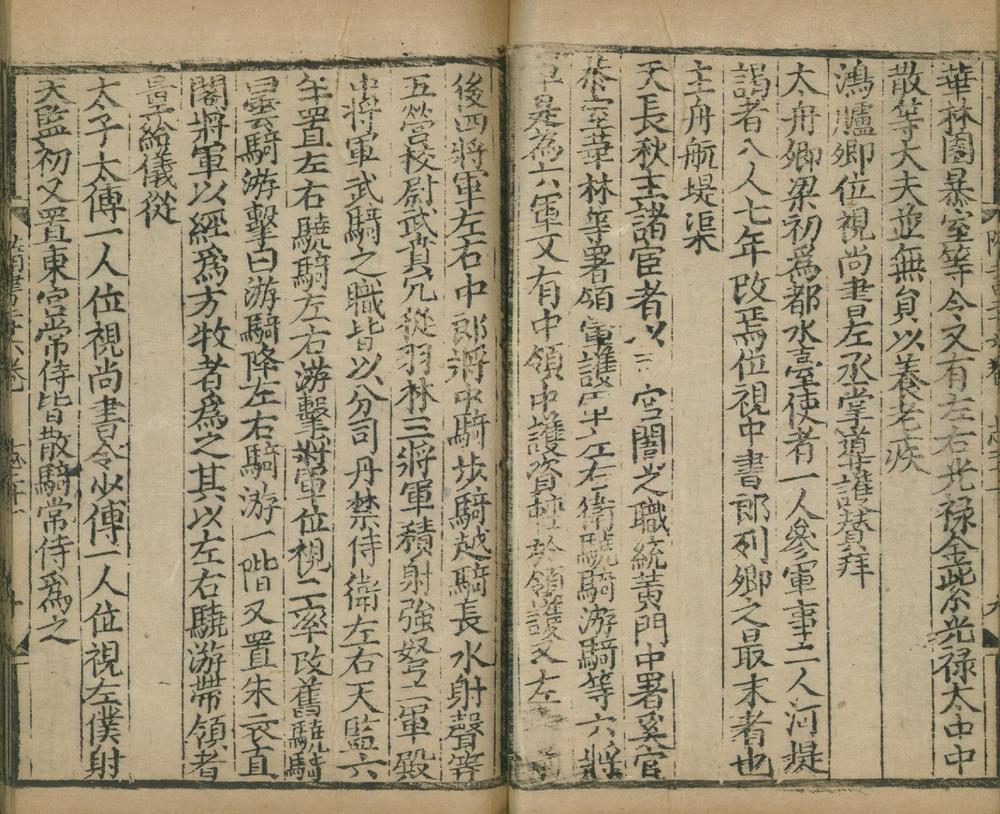 華林園暴室等令又有左右光禄金紫光禄太中中
散等大夫並無員以養老疾
鴻臚卿位視尚書左丞掌導護賛拜
太舟卿梁初爲都水臺使者一人參軍事二人河堤
謁者八人七年改焉位視中書郎列卿之最末者也
主舟航堤渠
大長秋主諸宦者以 宫闈之職統黄門中署奚官
暴室華林等署領軍護軍左右衛驍騎游騎等六將
軍是爲六軍又有中領中護資輕於領護又左
後四將軍左右中郎將屯騎步騎越騎長水射聲等
五營校尉武賁宂從羽林三將軍積射強弩二軍殿
中將軍武騎之職皆以分司丹禁侍衛左右天監六
年置左右驍騎左右游擊將軍位視二率改舊驍騎
曰雲騎游擊曰游騎降左右騎游一階又置朱衣直
閣將軍以經爲方牧者爲之其以左右驍游帶領者
量給儀從
太子太傅一人位視尚書令少傅一人位視左僕射
天監初又置東宫常侍皆散騎常侍爲之